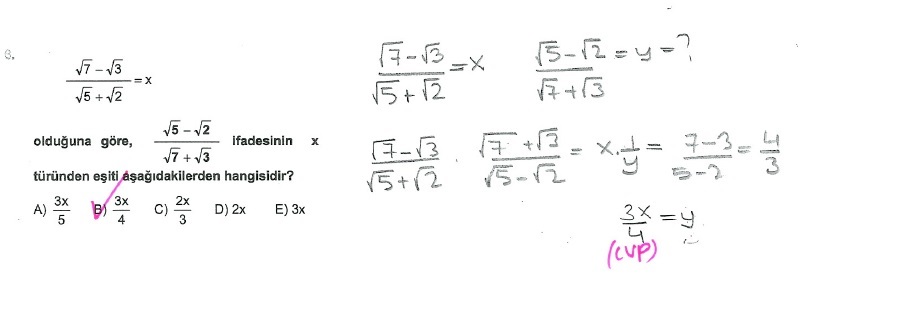 8.
(√7 − √3)/(√5 + √2) = x
olduğuna göre, (√5 − √2)/(√7 + √3) ifadesinin x
türünden eşiti aşağıdakilerden hangisidir?
A) 3x/5 B) 3x/4 C) 2x/3 D) 2x E) 3x
(√7 − √3)/(√5 + √2) = x (√5 − √2)/(√7 + √3) = y = ?
(√7 − √3)/(√5 + √2) . (√7 + √3)/(√5 − √2) = x . 1/y = (7 − 3)/(5 − 2) = 4/3
3x/4 = y
(CVP)